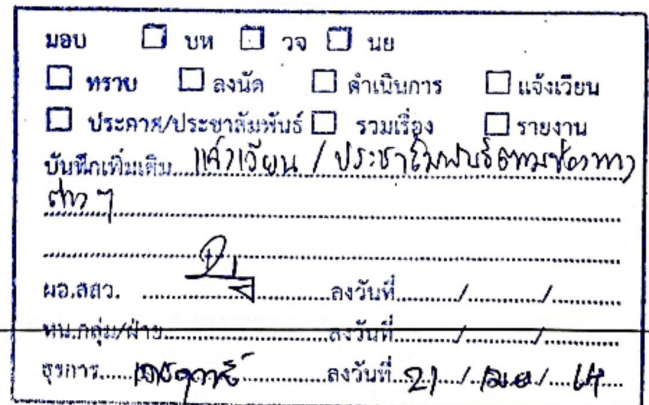 มอบ ☐ บห ☐ วจ ☐ นย
☐ ทราบ ☐ ลงนัด ☐ ดำเนินการ ☐ แจ้งเวียน
☐ ประกาศ/ประชาสัมพันธ์ ☐ รวมเรื่อง ☐ รายงาน
บันทึกเพิ่มเติม แจ้งเวียน / ประชาสัมพันธ์ตามช่องทาง
ต่าง ๆ
ผอ.สสว. ............ ลงวันที่............/............/............
หน.กลุ่ม/ฝ่าย............ลงวันที่............/............/............
ธุรการ............ลงวันที่ 21 / เมย /